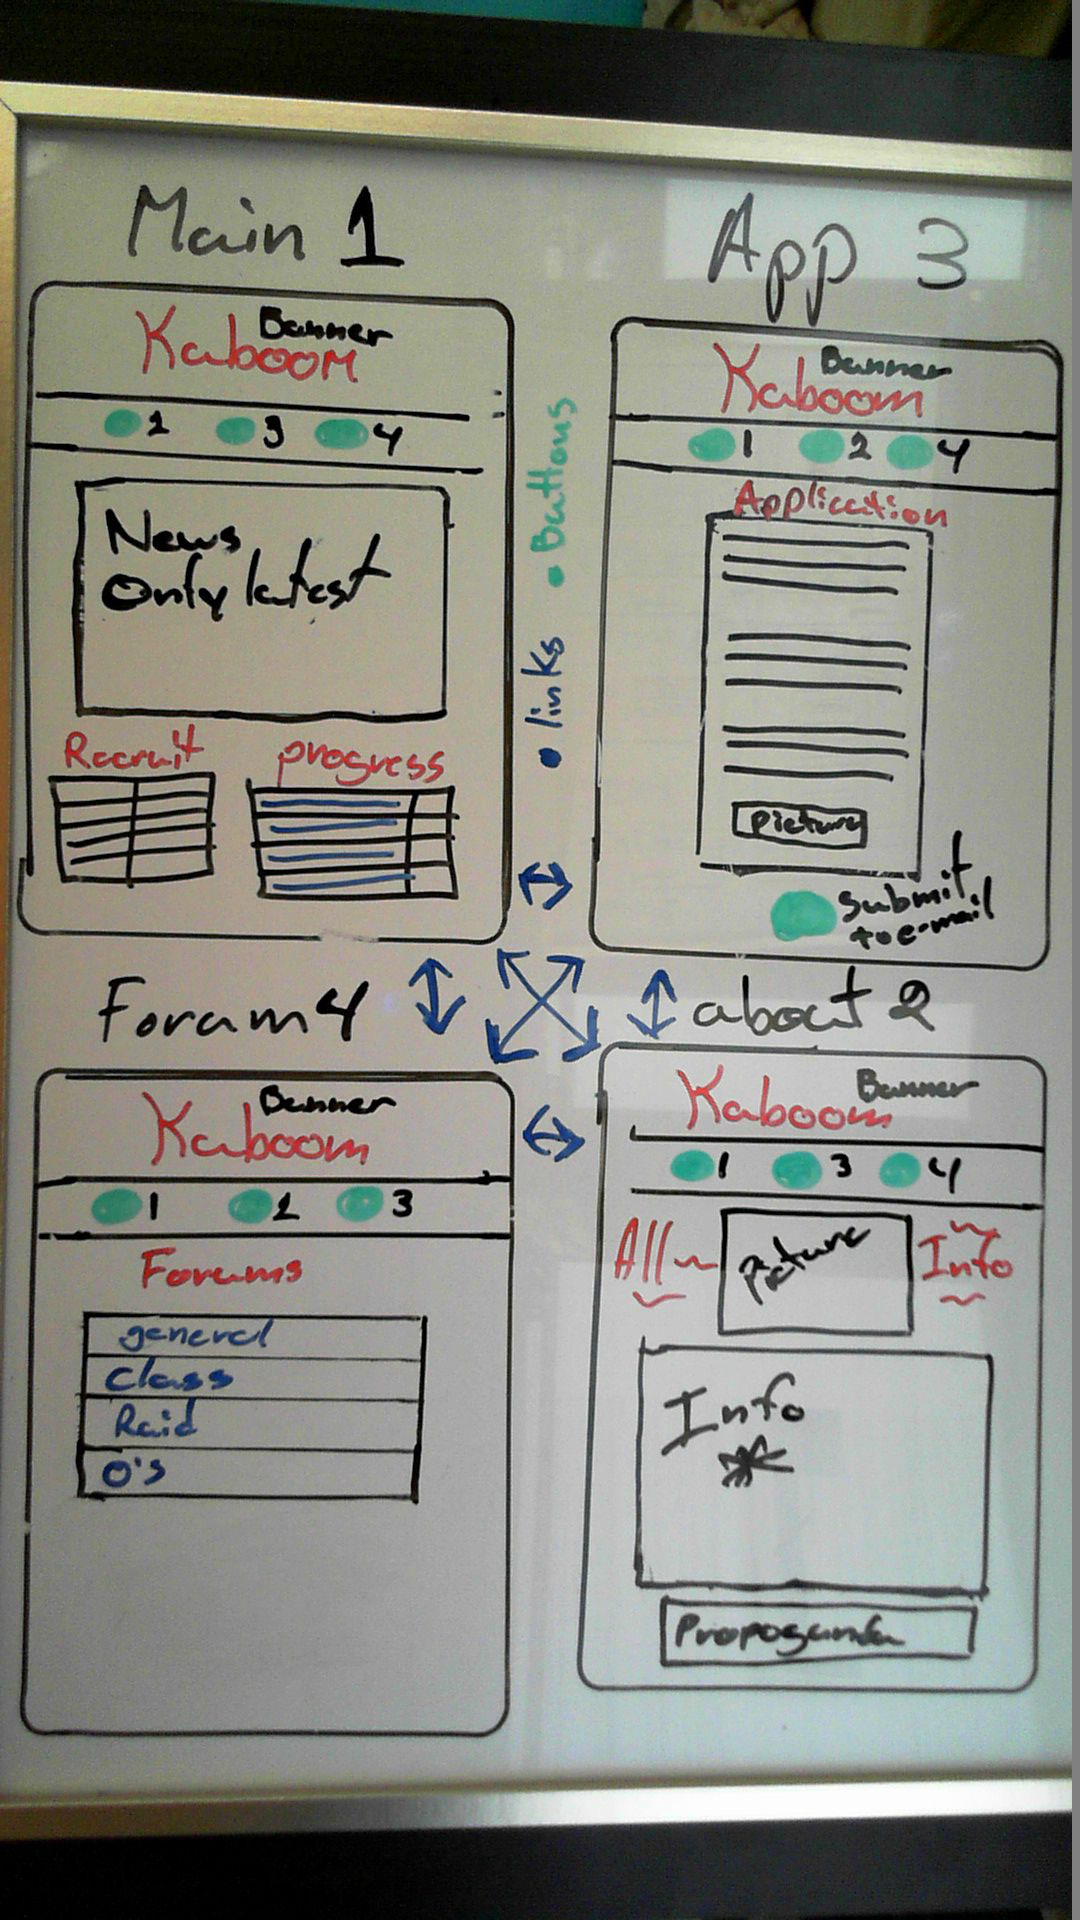 Main 1
Banner
Kaboom
2 3 4
News
Only latest
Recruit progress
links Buttons
App 3
Banner
Kaboom
1 2 4
Application
Picture
Submit
to e-mail
Forum 4
Banner
Kaboom
1 2 3
Forums
general
Class
Raid
O's
about 2
Banner
Kaboom
1 3 4
All Picture Info
Info
Propoganda